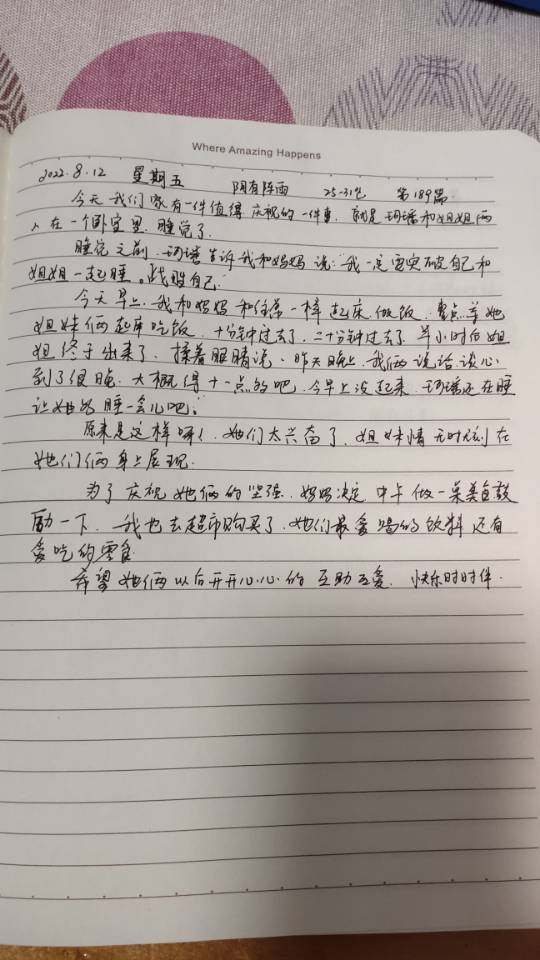 Where Amazing Happens
2022.8.12 星期五 阴有阵雨 25-31℃ 第189篇
今天我们家有一件值得庆祝的一件事,就是珂瑶和姐姐两
人在一个卧室里睡觉了.
睡觉之前,珂瑶告诉我和妈妈说:我一定要突破自己和
姐姐一起睡。战胜自己.
今天早上,我和妈妈和往常一样起床做饭,点等她
姐妹俩起床吃饭,十分钟过去了,二十分钟过去了,半小时后姐
姐终于出来了,揉着眼睛说,昨天晚上,我俩说话谈心
到了很晚,大概得十一点多吧,今早上没起来,珂瑶还在睡
让她多睡一会儿吧。
原来是这样啊!她们太兴奋了,姐妹情无时刻在
她们俩身上展现.
为了庆祝她俩的坚强,妈妈决定中午做一桌美食鼓
励一下,我也去超市购买了,她们最爱喝的饮料还有
爱吃的零食
希望她俩以后开开心心的互助互爱,快乐时时伴.